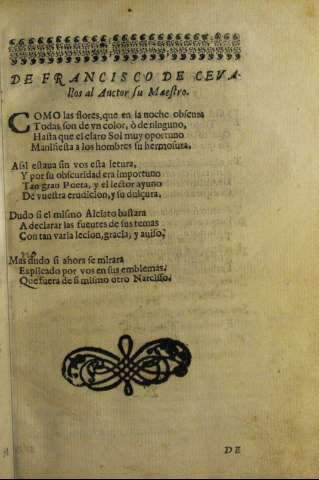 DE FRANCISCO DE CEVA-
llos al Auctor su Maestro.
COMO las flores, que en la noche obscura
Todas, son de vn color, ò de ninguno,
Hasta que el claro Sol muy oportuno
Manifiesta a los hombres su hermosura.
Assi estaua sin vos esta letura,
Y por su obscuridad era importuno
Tan gran Poeta, y el lector ayuno
De vuestra erudicion, y su dulçura.
Dudo si el mismo Alciato bastara
A declarar las fuentes de sus temas
Con tan varia lecion, gracia, y auiso.
Mas dudo si ahora se mirara
Explicado por vos en sus emblemas.
Que fuera de si mismo otro Narcisso.
DE